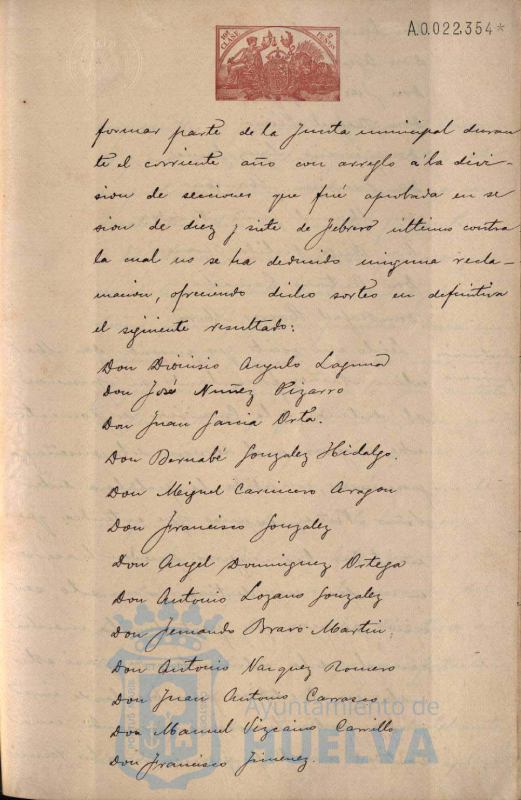 10ª CLASE
2 PESETAS
A.0.022.354*
formar parte de la Junta municipal duran
te el corriente año con arreglo á la divi-
sion de secciones que fué aprobada en se
sion de diez y siete de Febrero último contra
la cual no se ha deducido ninguna recla-
macion, ofreciendo dicho sorteo en definitiva
el siguiente resultado:
Don Dionisio Angulo Laguna
Don José Nuñez Pizarro
Don Juan Garcia Orta.
Don Bernabé Gonzalez Hidalgo.
Don Miguel Carnicero Aragon
Don Francisco Gonzalez
Don Angel Dominguez Ortega
Don Antonio Lozano Gonzalez
Don Fernando Bravo Martin.
Don Antonio Vazquez Romero
Don Juan Antonio Carrasco
Don Manuel Vizcaino Carrillo
Don Francisco Jimenez.
Ayuntamiento de
HUELVA